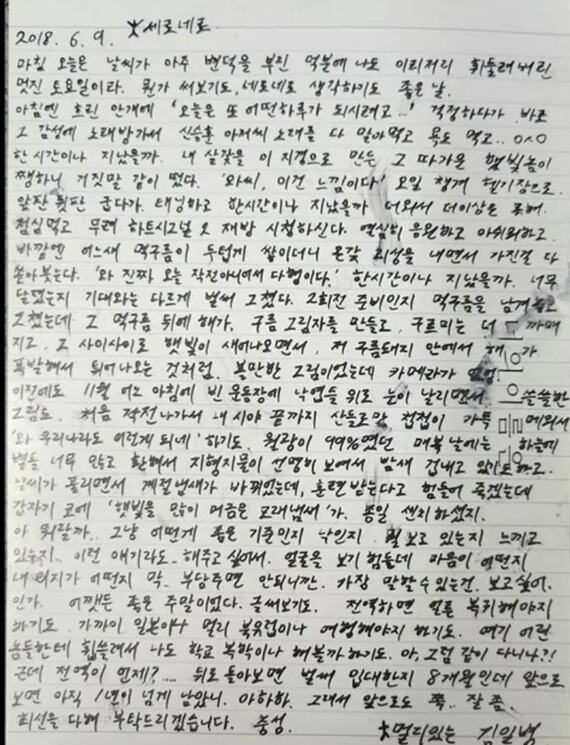 2018. 6. 9. 세로네로
마침 오늘은 날씨가 아주 변덕을 부린 덕분에 나도 이리저리 휘둘려버린
멋진 토요일이라. 뭔가 써보기도, 세로네로 생각하기도 좋은 날.
아침엔 흐린 안개에 '오늘은 또 어떤하루가 되시려고...' 걱정하다가 바로
그 감성에 노래방가서 신승훈 아저씨 노래를 다 말아먹고 욕도 먹고..
한시간이나 지났을까. 내 살갗을 이 지경으로 만든 그 따가운 햇빛놈이
쨍하니 거짓말 같이 떴다. '와씨, 이건 느낌이다' 오일 챙겨 헬기장으로.
앞판 뒷판 굽다가. 태닝하고 한시간이나 지났을까 더워서 더이상은 못해.
점심먹고 무려 하트시그널 2 재방 시청하신다. 열심히 응원하고 아쉬워하고.
바깥엔 어느새 먹구름이 두텁게 쌓이더니 온갖 괴성을 내면서 가진걸 다
쏟아붓는다. '와 진짜 오늘 작전아니여서 다행이다.' 한시간이나 지났을까. 너무
달렸는지 기대와는 다르게 벌써 그쳤다. 2회전 준비인지 먹구름을 남겨놓고
그쳤는데 그 먹구름 뒤에 해가. 구름 그림자를 만들고, 구르미는 더 까매
지고, 그 사이사이로 햇빛이 새어나오면서, 저 구름돼지 안에서 해가
폭발해서 튀어나오는 것처럼. 볼만한 그림이었는데 카메라가 없엉
이전에도 11월 어느 아침에 빈 운동장에 낙엽들 위로 눈이 날리면서 쓸쓸한
그림도. 처음 작전나가서 내 시야 끝까지 산들로만 첩첩이 가득 메워서
'와 우리나라도 이렇게 되네' 하기도. 월광이 99%였던 매복날에는 하늘에
별들 너무 많고 환해서 지형지물이 선명히 보여서 밤새 겁내고 있기도하고.
날씨가 풀리면서 계절냄새가 바뀌었는데, 훈련 받는다고 힘들어 죽겠는데
갑자기 코에 '햇빛을 많이 머금은 모래냄새'가. 종일 센치하셨지.
아 뭐랄까.. 그냥 어떻게 좋은 기준인지 낙인지 뭘 보고 있는지 느끼고
있는지.. 이런 얘기라도.. 해주고 싶어서. 얼굴을 보기 힘든데 마음이 어떤지
내 의지가 어떤지 막.. 부담주면 안되니깐. 가장 말할수 있는건. 보고싶어.
인가. 어쨌든 좋은 주말이었다. 글써보기도. 전역하면 얼른 복귀해야지
하기도. 가까이 일본이나 멀리 북유럽이나 여행해야지 하기도. 여기 어린
놈들한테 휩쓸려서 나도 학교 복학이나 해볼까하기도. 아, 그럼 같이 다니나?!
근데 전역이 언제?.... 뒤로 돌아보면 벌써 입대한지 8개월인데 앞으로
보면 아직 1년이 넘게 남았니. 아하하. 그래서 앞으로도 쭉.. 잘 좀.
최선을 다해 부탁드리겠습니다. 충성.
멀리있는 김일병